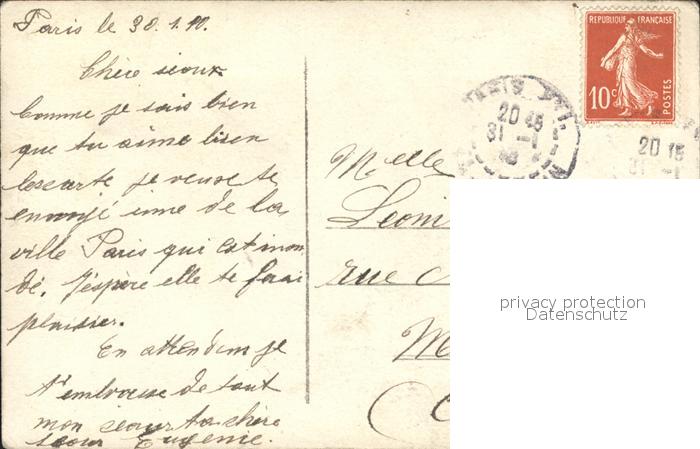 Paris le 30.1.10.
Chère seour
Comme je sais bien
que tu aime bien
les carte je veuse te
envoyé une de la
ville Paris qui est inon
dé. J'éspère elle te ferai
plaisier.
En attendem je
t'embrasse de tout
mon seour ta chère
seour Eugenie.
REPUBLIQUE FRANÇAISE
10c POSTES
PARIS
20 45
31 -1
20 45
31 -1
Melle
Leoni
rue
M
privacy protection
Datenschutz